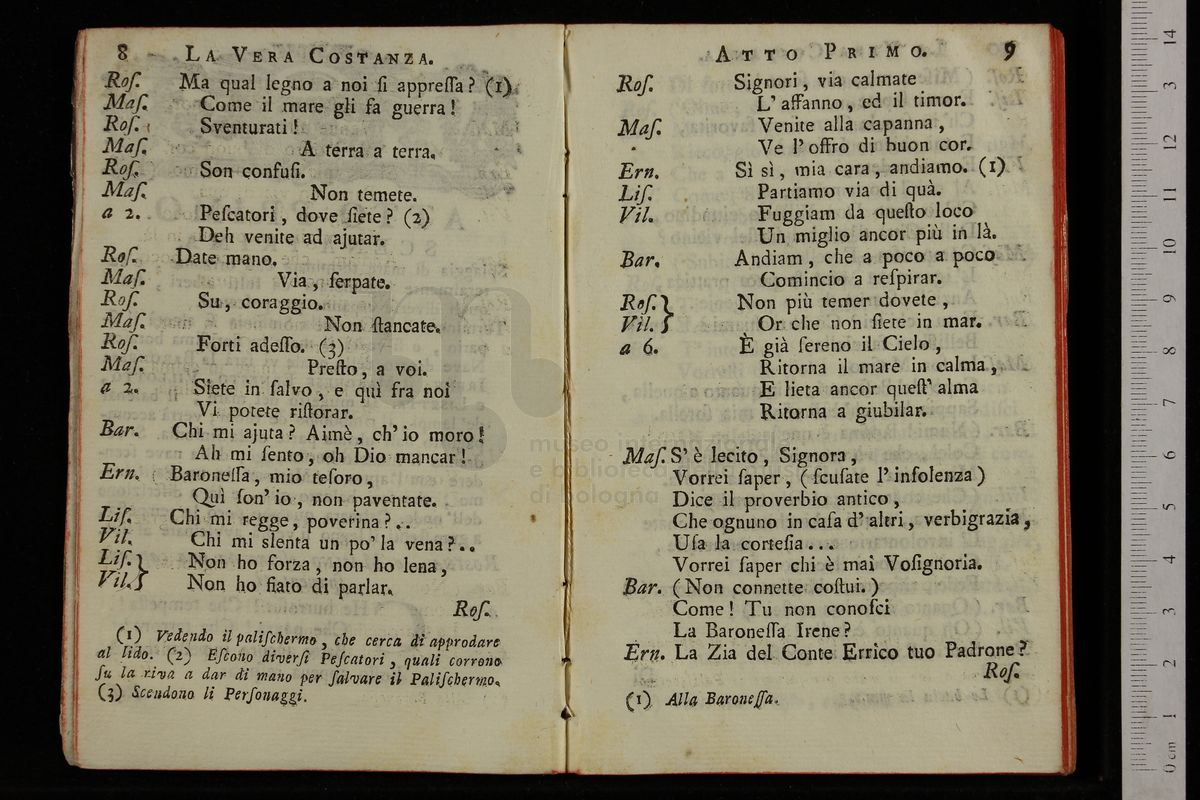 8 LA VERA COSTANZA.
Roſ. Ma qual legno a noi ſi appreſſa? (1)
Maſ. Come il mare gli fa guerra!
Roſ. Sventurati!
Maſ. A terra a terra.
Roſ. Son confuſi.
Maſ. Non temete.
a 2. Peſcatori, dove ſiete? (2)
Deh venite ad ajutar.
Roſ. Date mano.
Maſ. Via, ſerpate.
Roſ. Su, coraggio.
Maſ. Non ſtancate.
Roſ. Forti adeſſo. (3)
Maſ. Preſto, a voi.
a 2. Siete in ſalvo, e quì fra noi
Vi potete riſtorar.
Bar. Chi mi ajuta? Aimè, ch'io moro!
Ah mi ſento, oh Dio mancar!
Ern. Baroneſſa, mio teſoro,
Quì ſon'io, non paventate.
Liſ. Chi mi regge, poverina?..
Vil. Chi mi slenta un po' la vena?..
Liſ. } Non ho forza, non ho lena,
Vil. } Non ho fiato di parlar.
Roſ.
(1) Vedendo il paliſchermo, che cerca di approdare
al lido. (2) Eſcono diverſi Peſcatori, quali corrono
ſu la riva a dar di mano per ſalvare il Paliſchermo.
(3) Scendono li Perſonaggi.
ATTO PRIMO. 9
Roſ. Signori, via calmate
L'affanno, ed il timor.
Maſ. Venite alla capanna,
Ve l'offro di buon cor.
Ern. Sì sì, mia cara, andiamo. (1)
Liſ. Partiamo via di quà.
Vil. Fuggiam da queſto loco
Un miglio ancor più in là.
Bar. Andiam, che a poco a poco
Comincio a reſpirar.
Roſ. } Non più temer dovete,
Vil. } Or che non ſiete in mar.
a 6. È già ſereno il Cielo,
Ritorna il mare in calma,
E lieta ancor queſt'alma
Ritorna a giubilar.
Maſ. S'è lecito, Signora,
Vorrei ſaper, (ſcuſate l'inſolenza)
Dice il proverbio antico,
Che ognuno in caſa d'altri, verbigrazia,
Uſa la corteſia...
Vorrei ſaper chi è mai Voſignoria.
Bar. (Non connette coſtui.)
Come! Tu non conoſci
La Baroneſſa Irene?
Ern. La Zia del Conte Errico tuo Padrone?
Roſ.
(1) Alla Baroneſſa.
museo internazionale
e biblioteca della musica
di bologna
0 cm 1 2 3 4 5 6 7 8 9 10 11 12 3 14